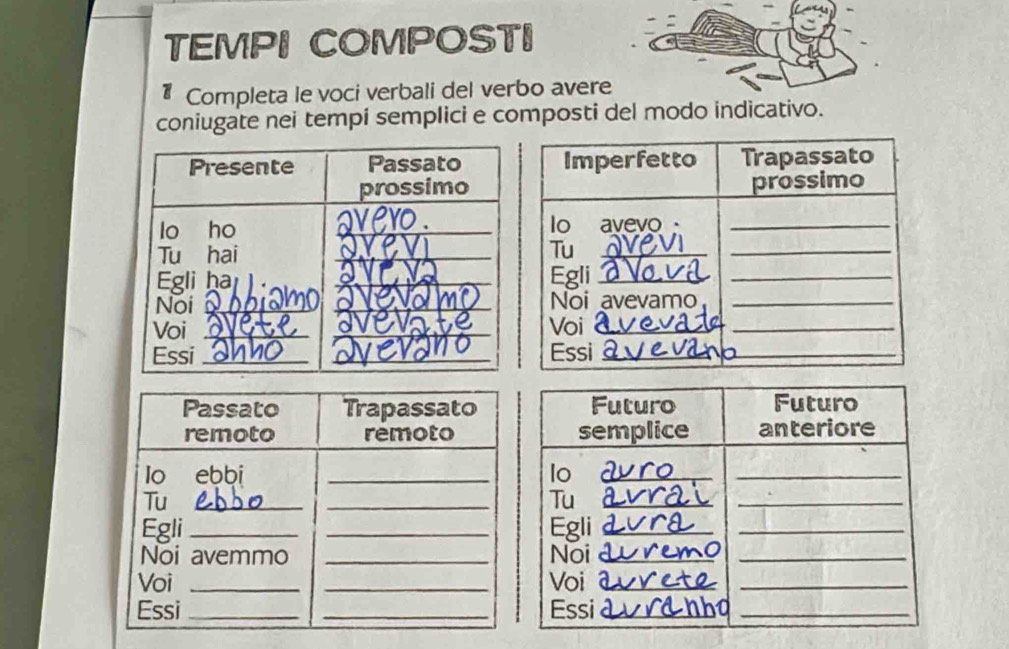 TEMPI COMPOSTI
1 Completa le voci verbali del verbo avere
coniugate nei tempi semplici e composti del modo indicativo.
Presente Passato prossimo
Io ho avevo.
Tu hai avevi
Egli ha aveva
Noi abbiamo avevamo
Voi avete avevate
Essi anno avevano
Imperfetto Trapassato prossimo
Io avevo
Tu avevi
Egli aveva
Noi avevamo
Voi avevate
Essi avevano
Passato remoto Trapassato remoto
Io ebbi
Tu ebbo
Egli
Noi avemmo
Voi
Essi
Futuro semplice Futuro anteriore
Io avro
Tu avrai
Egli avra
Noi avremo
Voi avrete
Essi avranno